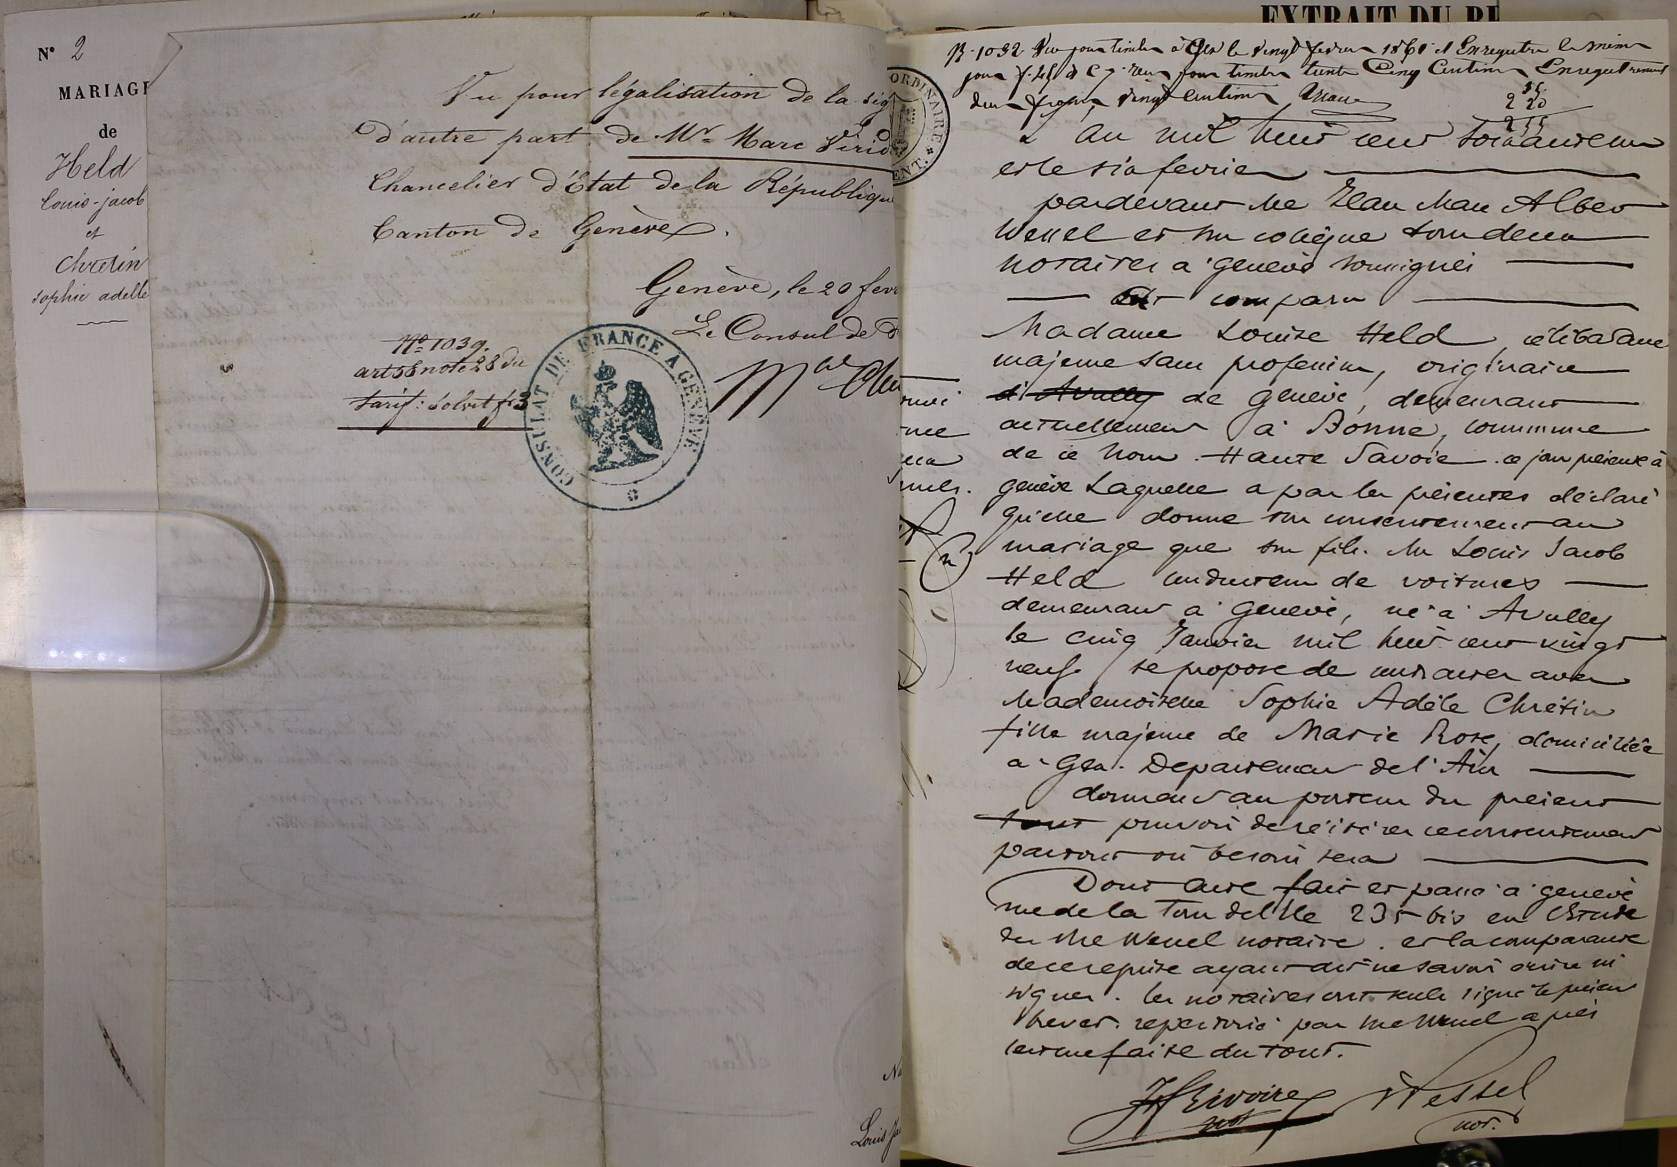 N° 2
MARIAGE
de
Held
Louis-jacob
et
Chrétin
sophie adelle
Vu pour légalisation de la sig
d'autre part de Mr Marc Virid
Chancelier d'Etat de la République
Canton de Genève.
Genève, le 20 fevr
Le Consul de
N° 1039.
art 58 note 28 du
tarif: solvit f 3
CONSULAT DE FRANCE A GENÈVE
EXTRAIT DU RE
ORDINAIRE
CENT.
Nº 1032 Vu pour timbre à Gex le vingt fevrier 1861 et Enregistré le même
jour pour timbre trente Cinq Centimes Enregistrement
deux francs vingt centimes
35
2 20
2 55
au mil huit cent soixante un
et le six fevrier
pardevant Me Jean Marc Albert
Wessel et son collègue tous deux
notaires à Genève soussignés
Est comparu
Madame Louise Held, célibataire
majeure sans profession, originaire
d'Avully de Genève, demeurant
actuellement à Bonne, commune
de ce nom. Haute Savoie. ce jour présente à
Genève Laquelle a par les présentes déclaré
qu'elle donne son consentement au
mariage que son fils. Mr Louis Jacob
Held conducteur de voitures
demeurant à Genève, né à Avully
le cinq Janvier mil huit cent vingt
neuf se propose de contracter avec
Mademoiselle Sophie Adèle Chrétin
fille majeure de Marie Rose, domiciliée
à Gex. Departement de l'Ain
donnant au porteur du présent
tout pouvoir de réitérer ce consentement
partout où besoin sera
Dont acte fait et passé à Genève
rue de la Tour de l'Ile 235 bis en l'Etude
du Me Wessel notaire. et la comparante
de ce requise ayant dit ne savoir écrire ni
signer. les notaires ont seuls signé le présent
brevet. repertorié par Me Wessel après
lecture faite du tout.
Rivoire Wessel
not not.
Louis Ja